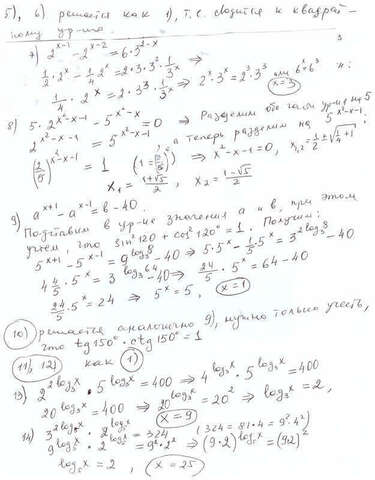 5), 6) решается как 1), т.е. сводится к квадрат-
ному ур-ию.
7) 2^{x-1} - 2^{x-2} = 6·3^{2-x} ⇒
1/2·2^x - 1/4 2^x = 2·3·3^2·1/3^x ⇒
1/4·2^x = 2·3^3·1/3^x ⇒ 2^x 3^x = 2^3·3^3 или 6^x 6^3
x=3
8) 5·2^{x²-x-1} - 5^{x²-x} = 0 ⇒ Разделим обе части ур-ия на 5
2^{x²-x-1} = 5^{x²-x-1}, а теперь разделим на 5^{x²-x-1}
(2/5)^{x²-x-1} = 1 ⇒ x²-x-1=0, x_{1,2} = 1/2 ± √(1/4+1);
x_1 = (1+√5)/2, x_2 = (1-√5)/2
9) a^{x+1} - a^{x-1} = b - 40.
Подставим в ур-ие значения a и b, при этом
учтем, что sin²120 + cos²120° = 1. Получим:
5^{x+1} - 5^{x-1} = 9^{log_3 8} - 40 ⇒ 5·5^x - 1/5·5^x = 3^{2log_3 8} - 40
4 4/5·5^x = 3^{log_3 64} - 40 ⇒ 24/5·5^x = 64 - 40
24/5·5^x = 24 ⇒ 5^x = 5, x=1
10) решается аналогично 9), нужно только учесть,
что tg150°·ctg150° = 1
11), 12) как 1)
13) 2^{2log_3 x}·5^{log_3 x} = 400 ⇒ 4^{log_3 x}·5^{log_3 x} = 400
20^{log_3 x} = 400 ⇒ 20^{log_3 x} = 20² ⇒ log_3 x = 2,
x=9
14) 3^{2log_5 x}·2^{log_5 x} = 324 (324 = 81·4 = 9²·4²)
9^{log_5 x}·2^{log_5 x} = 9²·2² ⇒ (9·2)^{log_5 x} = (9·2)²
log_5 x = 2, x=25